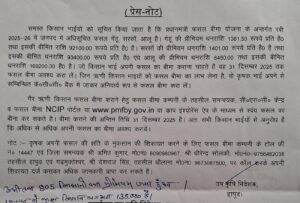 (प्रेस-नोट)
समस्त किसान भाईयो को सूचित किया जाता है कि प्रधानमंत्री फसल बीमा योजना के अन्तर्गत रबी
2025-26 में जनपद में अधिसूचित फसल गेहूं, सरसों आलू है। गेहूं की प्रीमियम धनराशि 1381.50 रूपये प्रति है0
तथा इसकी बीमित राशि 92100.00 रूपये प्रति है0 है। सरसों की प्रीमियम धनराशि 1401.00 रूपये प्रति है0 है तथा
इसकी बीमित राशि 93400.00 रूपये प्रति है0 एवं आलू की प्रीमियम धनराशि 8460.00 तथा इसकी बीमित धनराशि
169200.00 है। जो किसान भाई अपनी फसल का बीमा कराना चाहते है वह 31 दिसम्बर 2025 तक
फसल बीमा अवश्य करा लें। जिन ऋणी किसान भाईयो को फसल बीमा का लाभ लेना है, के कृषक भाई अपने से
सम्बन्धित के0सी0सी0 बैंक में जाकर अनिवार्य रूप से फसल बीमा करा लें।
गैर ऋणी किसान फसल बीमा कराने हेतु फसल बीमा कम्पनी के तहसील समन्वयक, सी0एस0सी0 केन्द्र
व फसल बीमा NCIP पोर्टल www.pmfby.gov.in पर जाकर
बीमा कर सकते है। बीमा कराने की अन्तिम तिथि 31 दिसम्बर 2025 है। अतः सभी किसान भाईयों से अनुरोध है
कि अधिक से अधिक अपनी फसल का बीमा करायें।
नोट :- कृषक अपनी फसल की क्षति के नुकसान की शिकायत करने के लिए फसल बीमा कम्पनी के टोल फ्री
न0 14447 एवं जिला समन्वयक श्री अमित कुमार मो0न0 तहसील
हापुड एवं गढमुक्तेश्वर, श्री देशराज सिंह, तहसील धौलाना मो0न0 9673087500, पर कॉल करके अपनी
शिकायत दर्ज कराकर अधिक जानकारी प्राप्त कर सकते है।
उप कृषि निदेशक,
हापुड़।
905 किसानों का प्रीमियम जमा हुआ
135000 है।